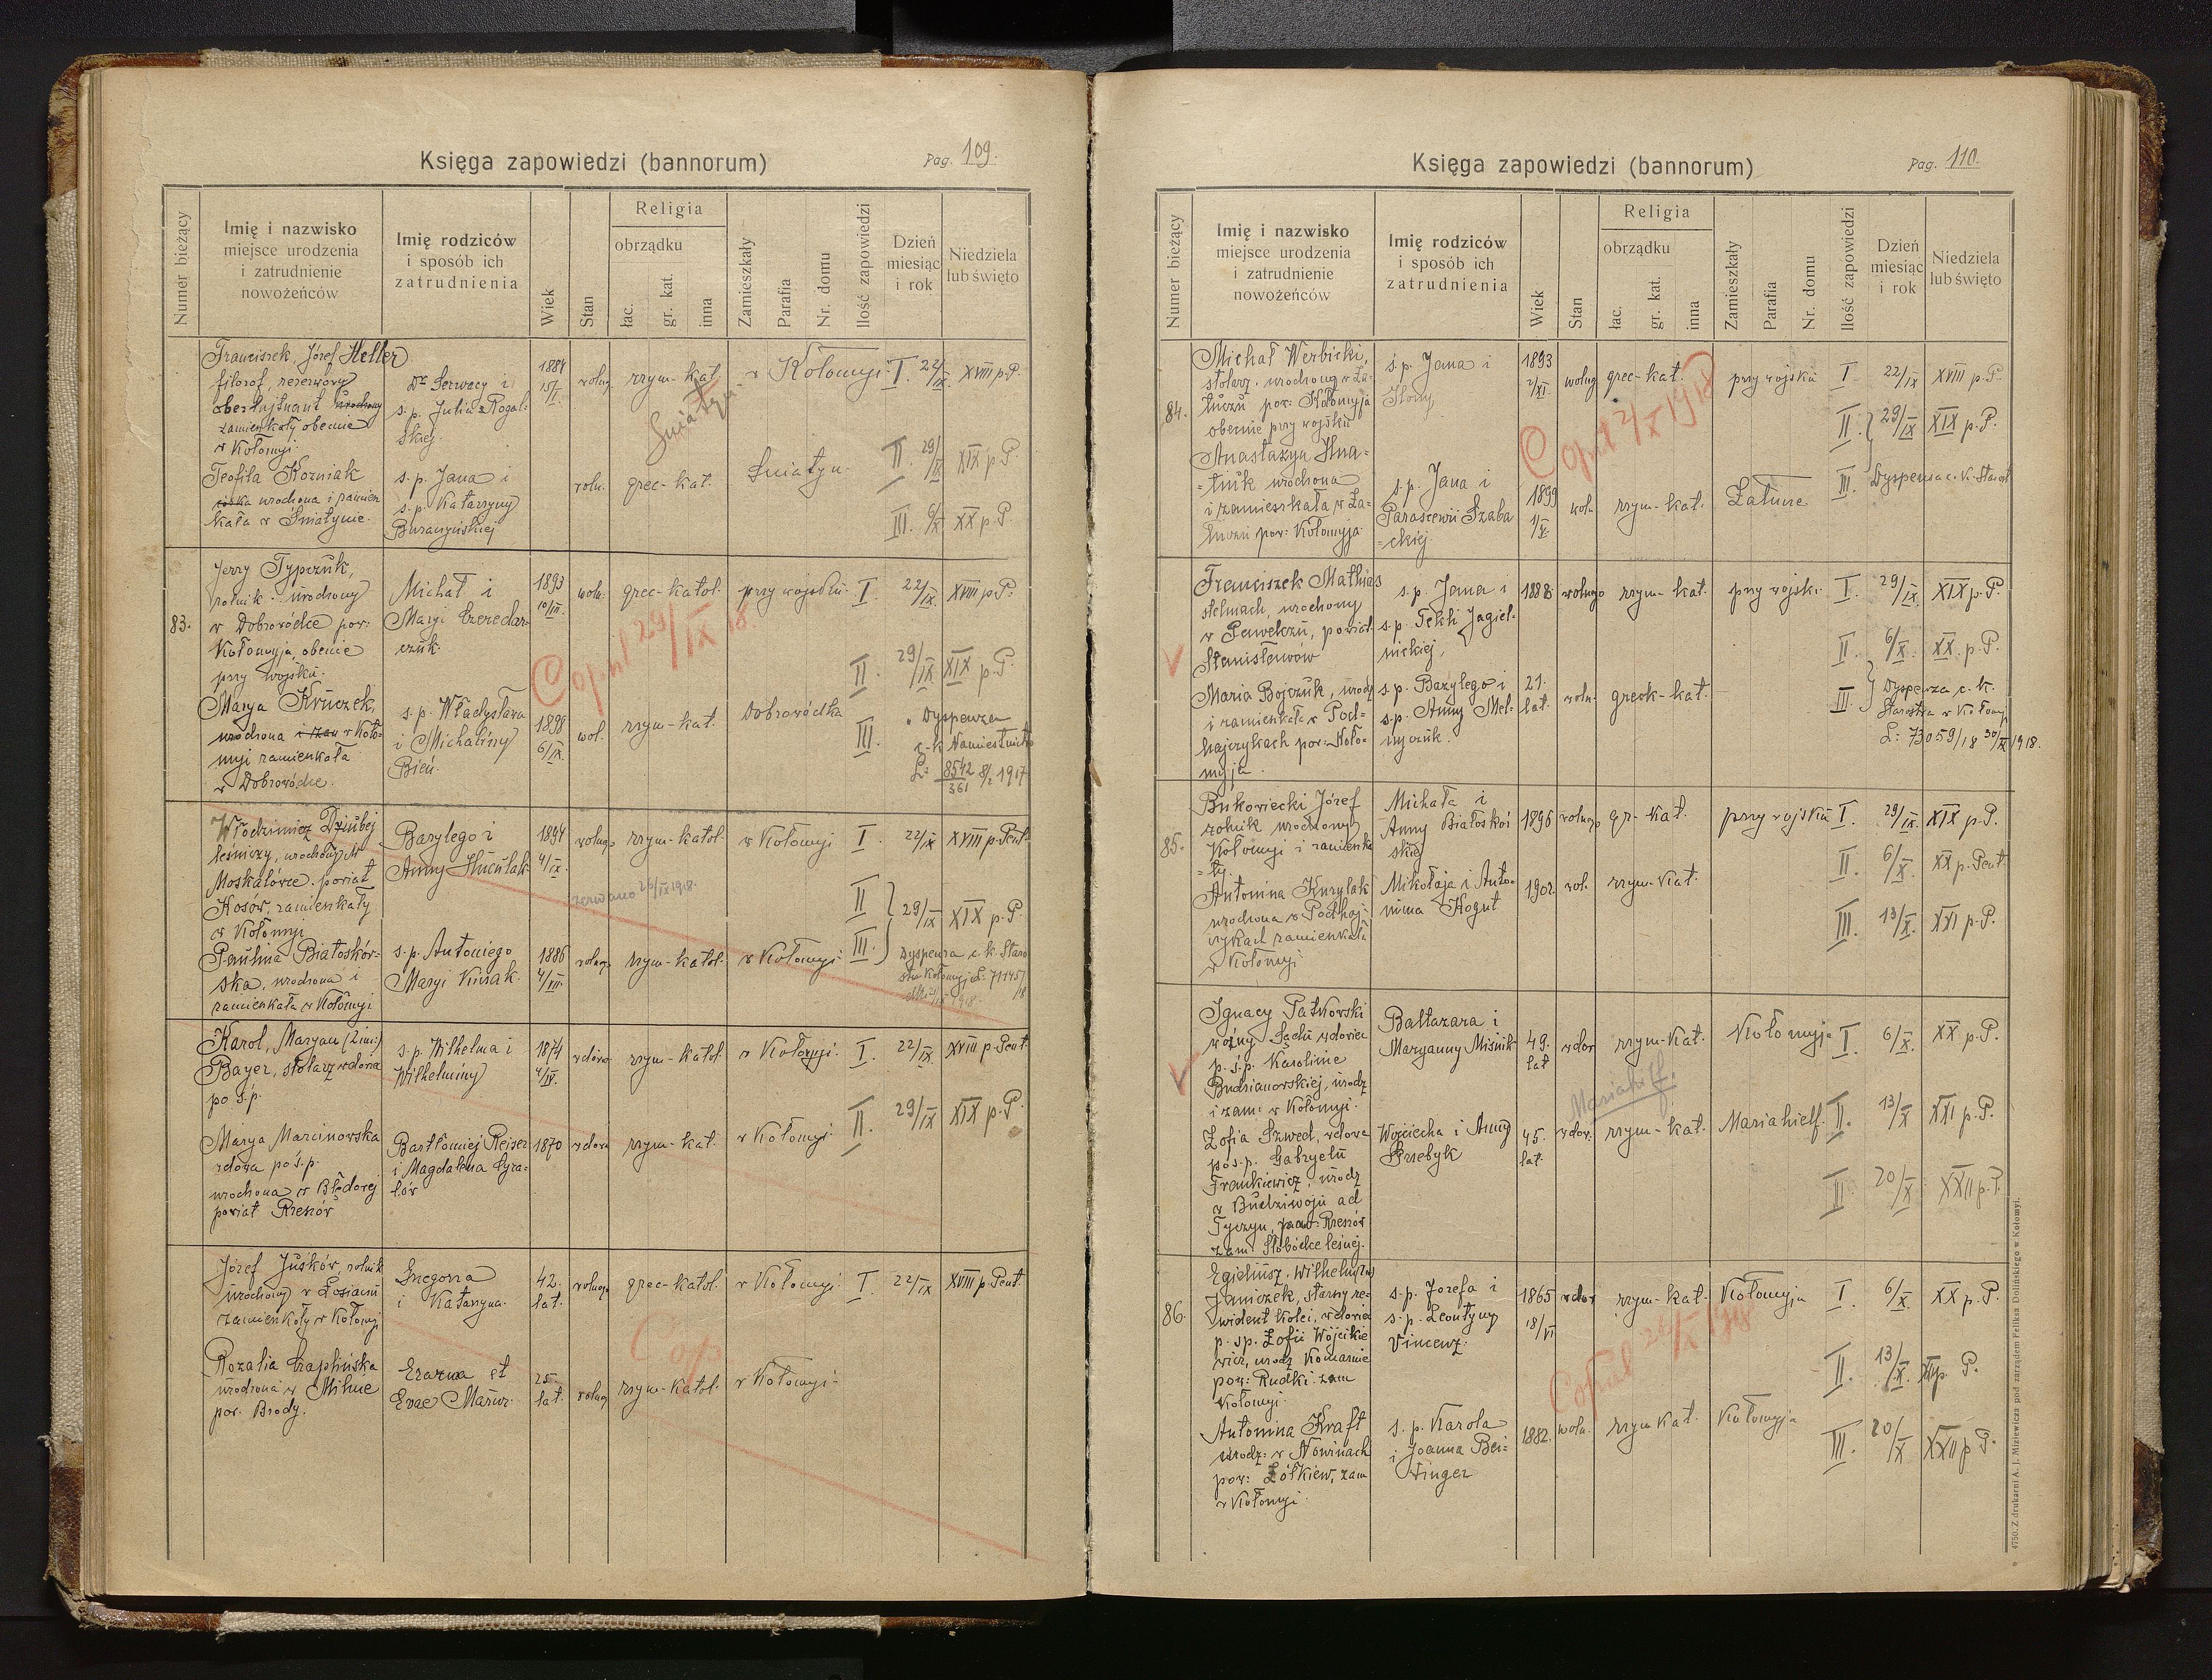 Księga zapowiedzi (bannorum)
Pag. 109.
Numer bieżący
Imię i nazwisko
miejsce urodzenia
i zatrudnienie
nowożeńców
Imię rodziców
i sposób ich
zatrudnienia
Wiek
Stan
Religia
obrządku
łac.
gr. kat.
inna
Zamieszkały
Parafia
Nr. domu
Ilość zapowiedzi
Dzień
miesiąc
i rok
Niedziela
lub święto
Franciszek, Józef Heller
filozof, rezerwowy
oberlejtnant urodzony
zamieszkały obecnie
w Kołomyi.
Dr Serwacy i
s.p. Julia z Rogal-
skiej.
1884
15/I.
wolny
rzym-kat.
w Kołomyi
I. 22/IX. XVIII p. P.
Śniatyn
Teofila Korniak
urodzona i zamiesz
kała w Śniatynie.
s.p. Jana i
s.p. Katarzyny
Buraczyńskiej
woln.
grec-kat.
Śniatyn.
II. 29/IX XIX p. P.
III. 6/X XX p. P.
83.
Jerzy Typczuk,
rolnik. urodzony
w Dobrowódce pow:
Kołomyja, obecnie
przy wojsku.
Michał i
Maryi Czeredar-
czuk.
1893
10/III.
woln.
grec-katol.
przy wojsku.
I. 22/IX. XVIII p. P.
Copul 29/IX 18.
II 29/IX XIX p. P.
Marya Kruczek,
urodzona i zam w Koło-
myi zamieszkała
w Dobrowódce.
s.p. Władysława
i Michaliny
Bień.
1898
6/IX.
wol.
rzym-kat.
Dobrowódka
III. Dyspenza
c-k Namiestnictw
L: 8542/361 8/2 1917
Włodzimierz Dziubej
leśniczy, urodzony w
Moskalówce. powiat
Kosów, zamieszkały
w Kołomyi
Bazylego i
Anny Huculak
1894
4/IX.
wolnego
rzym-katol.
w Kołomyi
I. 22/IX XVIII p. Pent.
zerwano 26/IX 1918.
II 29/IX XIX p. P.
Paulina Białoskór-
ska, urodzona i
zamieszkała w Kołomyi
s.p. Antoniego
Maryi Kusak.
1886
4/III.
wolnego
rzym-katol.
w Kołomyi
III Dyspenza c. k. Staro
stw Kołomyi L: 71145/18
Karol, Maryan (2 im:)
Bayer, stolarz wdowia
po ś.p.
s.p. Wilhelma i
Wilhelminy
1874
4/IV.
wdowa
rzym-katol
w Kołomyi.
I. 22/IX. XVIII p. Pent.
Marya Marcinowska
wdowa po ś.p.
urodzona w Błędowej
powiat Rzeszów
Bartłomiej Reiser
i Magdalena Cyra-
lów
1870
wdowa
rzym-kat.
w Kołomyi.
II. 29/IX XIX p. P.
Józef Juśków, rolnik
urodzony w Łosiaczu
zamieszkały w Kołomyi
Gregorza
i Katarzyna.
42.
lat.
wolnego
grec-katol.
w Kołomyi
I 22/IX XVIII p. Pent.
Cop
Rozalia Czaplińska
urodzona w Milnie
pow. Brody.
Erazma et
Evae Mazur.
25
lat.
wolny
rzym-katol.
w Kołomyi.
Księga zapowiedzi (bannorum)
Pag. 110.
Numer bieżący
Imię i nazwisko
miejsce urodzenia
i zatrudnienie
nowożeńców
Imię rodziców
i sposób ich
zatrudnienia
Wiek
Stan
Religia
obrządku
łac.
gr. kat.
inna
Zamieszkały
Parafia
Nr. domu
Ilość zapowiedzi
Dzień
miesiąc
i rok
Niedziela
lub święto
84.
Michał Werbicki,
stolarz. urodzony w Za-
łuczu pow: Kołomyja
obecnie przy wojsku
ś.p. Jana i
Ilony
1893
2/XI.
wolny
grec-kat.
przy wojsku
I 22/IX XVIII p. P.
Copul 2/X 1918
II. 29/IX XIX p. P.
Anastazya Hna-
tiuk urodzona
i zamieszkała w Za-
łuczu pow: Kołomyja
s.p. Jana i
Parascewii Szaba
-ckiej.
1899
1/X.
woln.
rzym-kat.
Załucze
III. Dyspensa c. k. Starost
Franciszek Mathias
stelmach, urodzony
w Pawełczu, powiat
Stanisławów
s.p. Jana i
s.p. Tekli Jagiel-
nickiej,
1888.
wolnego
rzym-kat.
przy wojsku.
I. 29/IX. XIX p. P.
II. 6/X. XX. p. P.
Maria Bojczuk, urodz
i zamieszkała w Pod-
hajczykach pow: Koło-
myja.
s.p. Bazylego i
s.p. Anny Mel-
nyczuk.
21.
lat.
woln.
greck-kat.
III. Dyspenza c. k.
Starostwa w Kołomyi
L: 73059/18 30/IX 1918.
85.
Bukowiecki Józef
rolnik urodzony
Kołomyi i zamieszka
-ły.
Michała i
Anny Białoskór
skiej
1896
wolnego
gr-kat.
przy wojsku
I. 29/IX. XIX p. P.
II. 6/X. XX p. Pent.
Antonina Kurylak
urodzona w Podhaj-
czykach zamieszkała
w Kołomyi
Mikołaja i Anto-
nina Kogut
1902.
wol.
rzym-kat.
III. 13/X. XXI p. P.
Ignacy Patkowski
woźny Sądu wdowiec
p. ś.p. Karolinie
Budzianowskiej, urodz
i zam: w Kołomyi.
Baltazara i
Maryanny Miśnik
49.
lat
wdow
rzym-kat.
Kołomyja
I. 6/X. XX p. P.
Mariahilf.
Zofia Szwed, wdowa
po ś.p. Gabryelu
Frankiewicz, urodz
w Budziwoju ad
Tyczyn, pow: Rzeszów
zam. Słobódce leśnej.
Wojciecha i Anny
Przebyk
45.
lat.
wdow.
rzym-kat.
Mariahielf.
II. 13/X XXI p. P.
II. 20/X. XXII p. P.
86.
Egidiusz, Wilhelm (2 im)
Janiczek, starszy re-
wident kolei, wdowiec
p. sp. Zofii Wójcikie
wicz, urodz Komarnie
pow: Rudki. zam
Kołomyi.
s.p. Jozefa i
s.p. Leontyny
Vincenz.
1865
18/VI
wdow
rzym-kat.
Kołomyja
I 6/X. XX p. P.
Copul 26/X 1918
II. 13/X. XXI p. P.
Antonina Kraft
urodz: w Nowinach
pow: Żółkiew, zam
w Kołomyi.
s. p. Karola
i Joanna Bei-
tinger
1882.
woln.
rzym kat.
Kołomyja
III. 20/X XXII p. P.
4750. Z drukarni A. J. Miziewicza pod zarządem Feliksa Dolińskiego w Kołomyi.